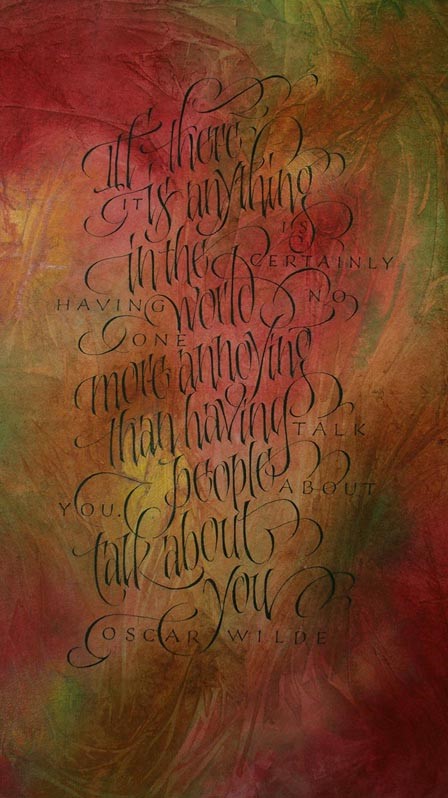 If there
is anything
in the
world
more annoying
than having
people
talk about
you
IT IS CERTAINLY
HAVING NO
ONE TALK
ABOUT
YOU.
OSCAR WILDE